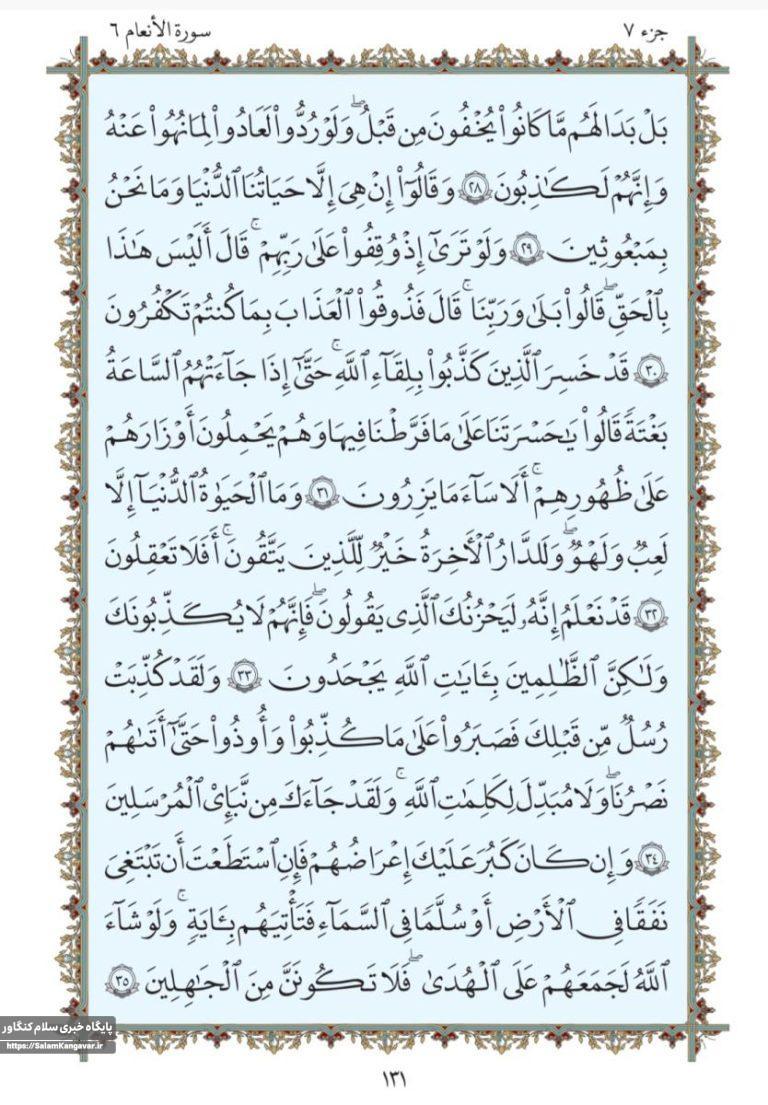 جزء ٧
سورة الأنعام ٦
بَلْ بَدَا لَهُم مَّا كَانُوا۟ يُخْفُونَ مِن قَبْلُ ۖ وَلَوْ رُدُّوا۟ لَعَادُوا۟ لِمَا نُهُوا۟ عَنْهُ
وَإِنَّهُمْ لَكَـٰذِبُونَ ٢٨ وَقَالُوٓا۟ إِنْ هِىَ إِلَّا حَيَاتُنَا ٱلدُّنْيَا وَمَا نَحْنُ
بِمَبْعُوثِينَ ٢٩ وَلَوْ تَرَىٰٓ إِذْ وُقِفُوا۟ عَلَىٰ رَبِّهِمْ ۚ قَالَ أَلَيْسَ هَـٰذَا
بِٱلْحَقِّ ۚ قَالُوا۟ بَلَىٰ وَرَبِّنَا ۚ قَالَ فَذُوقُوا۟ ٱلْعَذَابَ بِمَا كُنتُمْ تَكْفُرُونَ
٣٠ قَدْ خَسِرَ ٱلَّذِينَ كَذَّبُوا۟ بِلِقَآءِ ٱللَّهِ ۖ حَتَّىٰٓ إِذَا جَآءَتْهُمُ ٱلسَّاعَةُ
بَغْتَةً قَالُوا۟ يَـٰحَسْرَتَنَا عَلَىٰ مَا فَرَّطْنَا فِيهَا وَهُمْ يَحْمِلُونَ أَوْزَارَهُمْ
عَلَىٰ ظُهُورِهِمْ ۚ أَلَا سَآءَ مَا يَزِرُونَ ٣١ وَمَا ٱلْحَيَوٰةُ ٱلدُّنْيَآ إِلَّا
لَعِبٌ وَلَهْوٌ ۖ وَلَلدَّارُ ٱلْـَٔاخِرَةُ خَيْرٌ لِّلَّذِينَ يَتَّقُونَ ۗ أَفَلَا تَعْقِلُونَ
٣٢ قَدْ نَعْلَمُ إِنَّهُۥ لَيَحْزُنُكَ ٱلَّذِى يَقُولُونَ ۖ فَإِنَّهُمْ لَا يُكَذِّبُونَكَ
وَلَـٰكِنَّ ٱلظَّـٰلِمِينَ بِـَٔايَـٰتِ ٱللَّهِ يَجْحَدُونَ ٣٣ وَلَقَدْ كُذِّبَتْ
رُسُلٌ مِّن قَبْلِكَ فَصَبَرُوا۟ عَلَىٰ مَا كُذِّبُوا۟ وَأُوذُوا۟ حَتَّىٰٓ أَتَىٰهُمْ
نَصْرُنَا ۚ وَلَا مُبَدِّلَ لِكَلِمَـٰتِ ٱللَّهِ ۚ وَلَقَدْ جَآءَكَ مِن نَّبَإِى۟ ٱلْمُرْسَلِينَ
٣٤ وَإِن كَانَ كَبُرَ عَلَيْكَ إِعْرَاضُهُمْ فَإِنِ ٱسْتَطَعْتَ أَن تَبْتَغِىَ
نَفَقًا فِى ٱلْأَرْضِ أَوْ سُلَّمًا فِى ٱلسَّمَآءِ فَتَأْتِيَهُم بِـَٔايَةٍ ۚ وَلَوْ شَآءَ
ٱللَّهُ لَجَمَعَهُمْ عَلَى ٱلْهُدَىٰ ۚ فَلَا تَكُونَنَّ مِنَ ٱلْجَـٰهِلِينَ ٣٥
پایگاه خبری سلام کنگاور
https://SalamKangavar.ir
١٣١